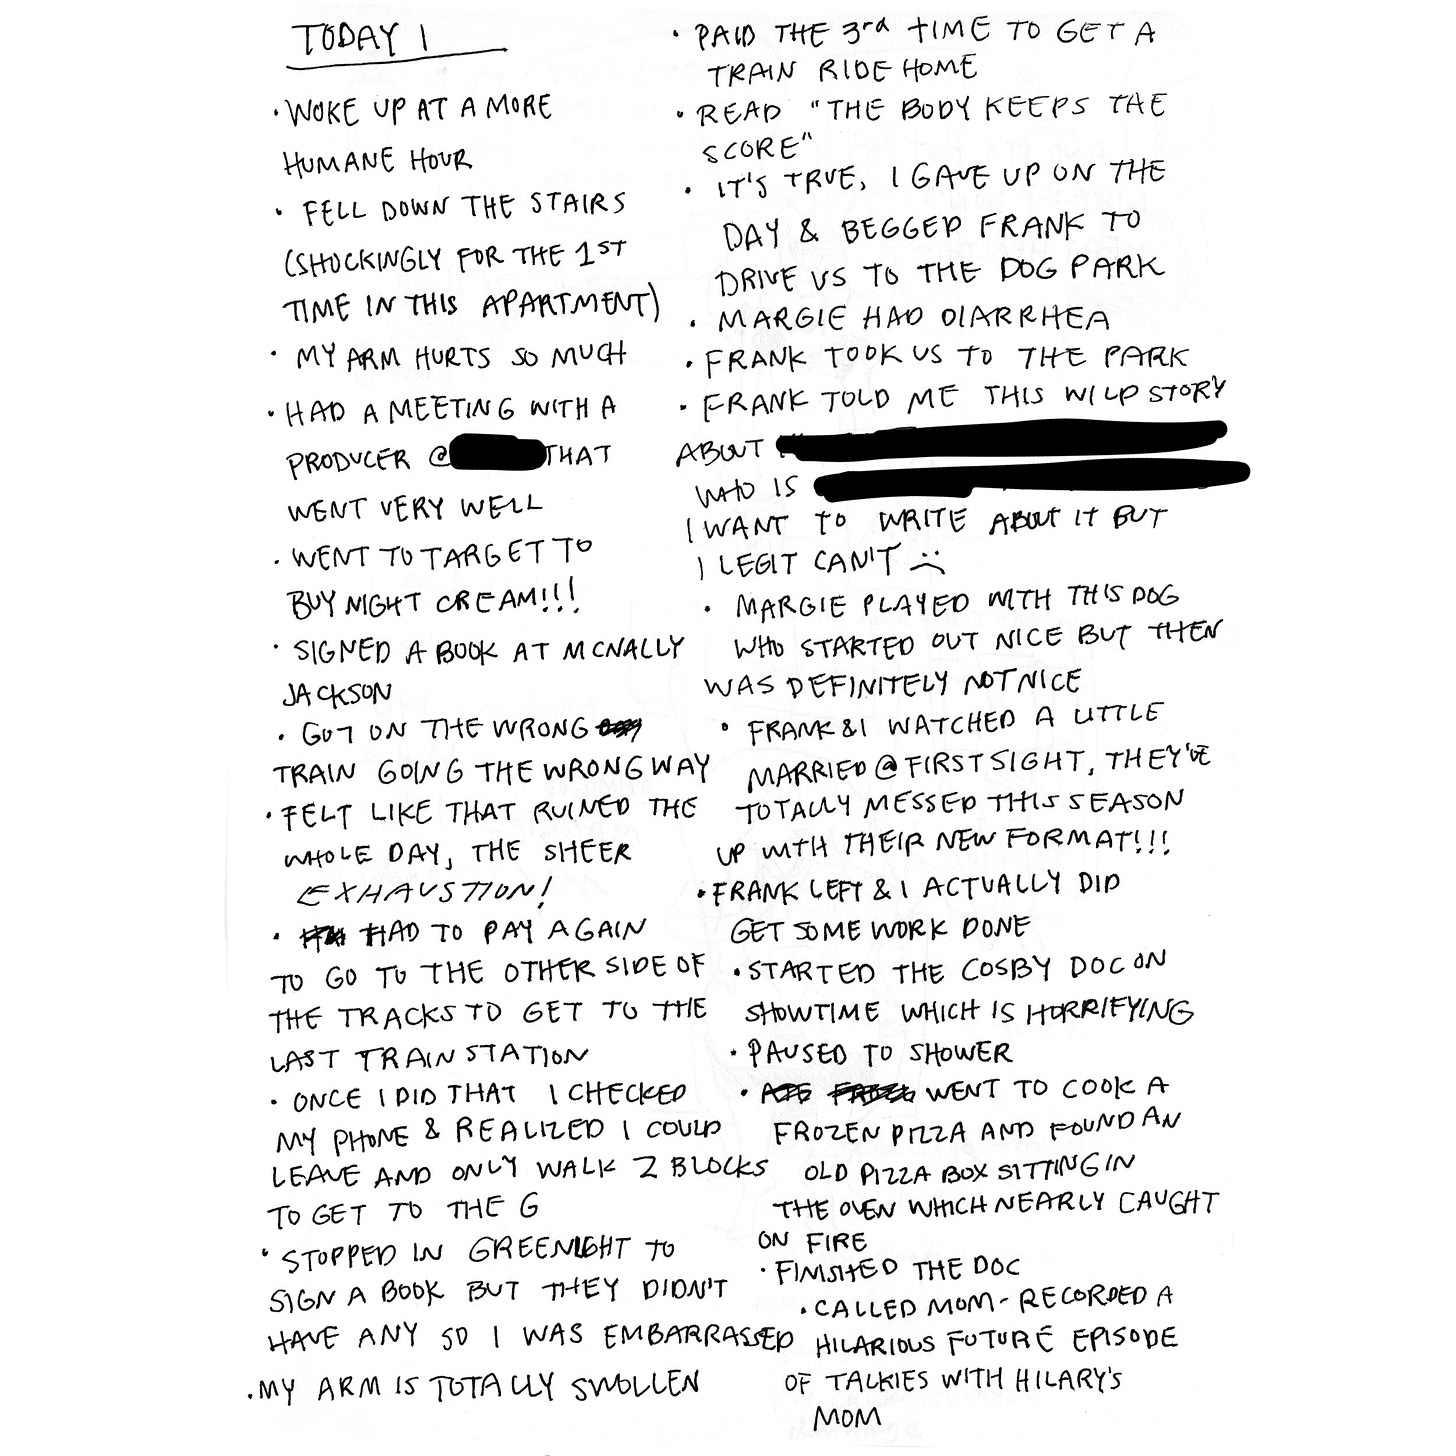 TODAY I
• WOKE UP AT A MORE
HUMANE HOUR
• FELL DOWN THE STAIRS
(SHOCKINGLY FOR THE 1ST
TIME IN THIS APARTMENT)
• MY ARM HURTS SO MUCH
• HAD A MEETING WITH A
PRODUCER @ THAT
WENT VERY WELL
• WENT TO TARGET TO
BUY NIGHT CREAM!!!
• SIGNED A BOOK AT MCNALLY
JACKSON
• GOT ON THE WRONG
TRAIN GOING THE WRONG WAY
• FELT LIKE THAT RUINED THE
WHOLE DAY, THE SHEER
EXHAUSTION!
• HAD TO PAY AGAIN
TO GO TO THE OTHER SIDE OF
THE TRACKS TO GET TO THE
LAST TRAIN STATION
• ONCE I DID THAT I CHECKED
MY PHONE & REALIZED I COULD
LEAVE AND ONLY WALK 2 BLOCKS
TO GET TO THE G
• STOPPED IN GREENLIGHT TO
SIGN A BOOK BUT THEY DIDN'T
HAVE ANY SO I WAS EMBARRASSED
• MY ARM IS TOTALLY SWOLLEN
• PAID THE 3rd TIME TO GET A
TRAIN RIDE HOME
• READ "THE BODY KEEPS THE
SCORE"
• IT'S TRUE, I GAVE UP ON THE
DAY & BEGGED FRANK TO
DRIVE US TO THE DOG PARK
• MARGIE HAD DIARRHEA
• FRANK TOOK US TO THE PARK
• FRANK TOLD ME THIS WILD STORY
ABOUT
WHO IS
I WANT TO WRITE ABOUT IT BUT
I LEGIT CAN'T :(
• MARGIE PLAYED WITH THIS DOG
WHO STARTED OUT NICE BUT THEN
WAS DEFINITELY NOT NICE
• FRANK & I WATCHED A LITTLE
MARRIED @ FIRST SIGHT, THEY'VE
TOTALLY MESSED THIS SEASON
UP WITH THEIR NEW FORMAT!!!
• FRANK LEFT & I ACTUALLY DID
GET SOME WORK DONE
• STARTED THE COSBY DOC ON
SHOWTIME WHICH IS HORRIFYING
• PAUSED TO SHOWER
• WENT TO COOK A
FROZEN PIZZA AND FOUND AN
OLD PIZZA BOX SITTING IN
THE OVEN WHICH NEARLY CAUGHT
ON FIRE
• FINISHED THE DOC
• CALLED MOM - RECORDED A
HILARIOUS FUTURE EPISODE
OF TALKIES WITH HILARY'S
MOM